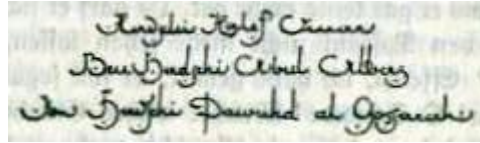 Hadschi Halef Omar
Ben Hadschi Abul Abbas
Ibn Hadschi Dawuhd al Gossarah